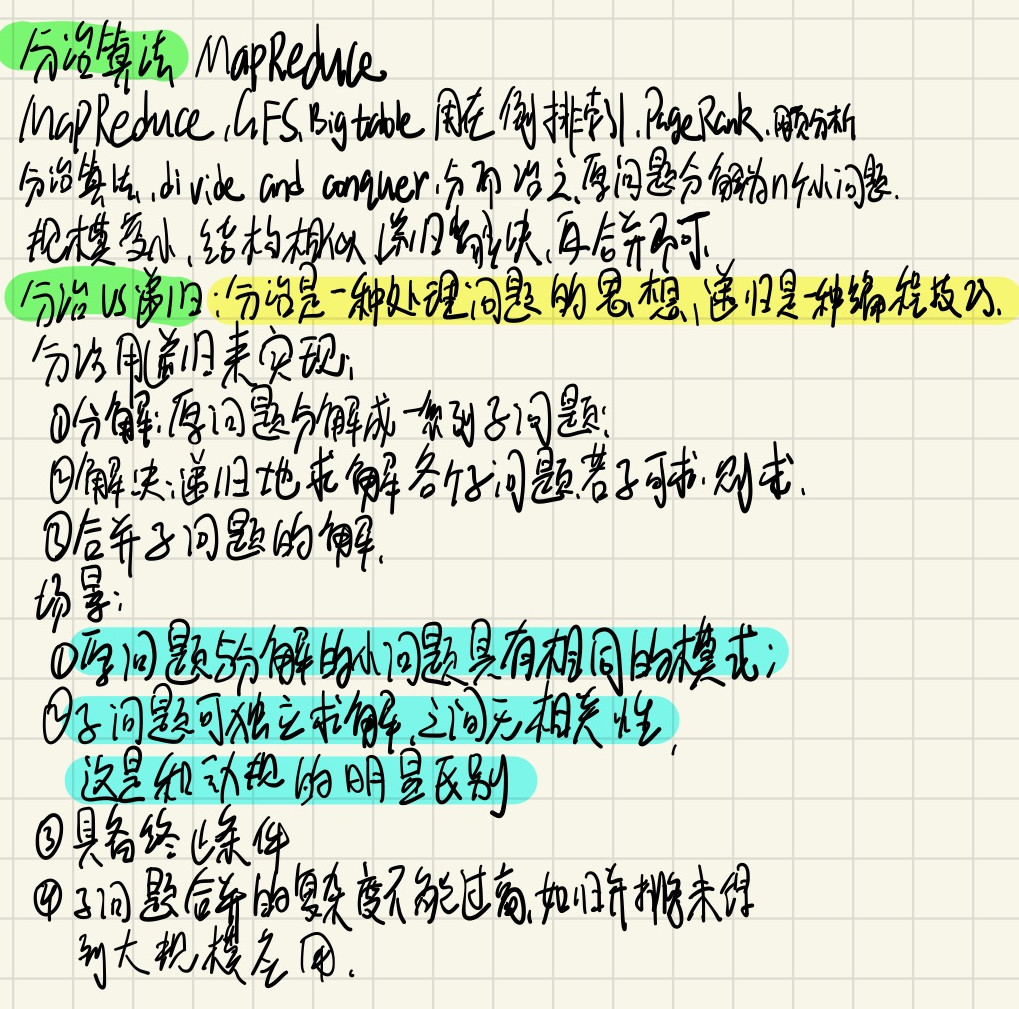 分治算法 MapReduce
MapReduce,GFS,Bigtable 用在倒排索引,PageRank,网页分析
分治算法,divide and conquer,分而治之,原问题分解为n个小问题.
规模变小,结构相似,递归解决,再合并即可.
分治VS递归:分治是一种处理问题的思想,递归是一种编程技巧.
分治用递归来实现:
①分解:原问题分解成一系列子问题;
②解决:递归地求解各个子问题.若子可求,则求.
③合并子问题的解.
场景:
①原问题与分解的小问题具有相同的模式;
②子问题可独立求解,之间无相关性,
这是和动规的明显区别
③具备终止条件
④子问题合并的复杂度不能过高,如归并排序未得
到大规模应用.